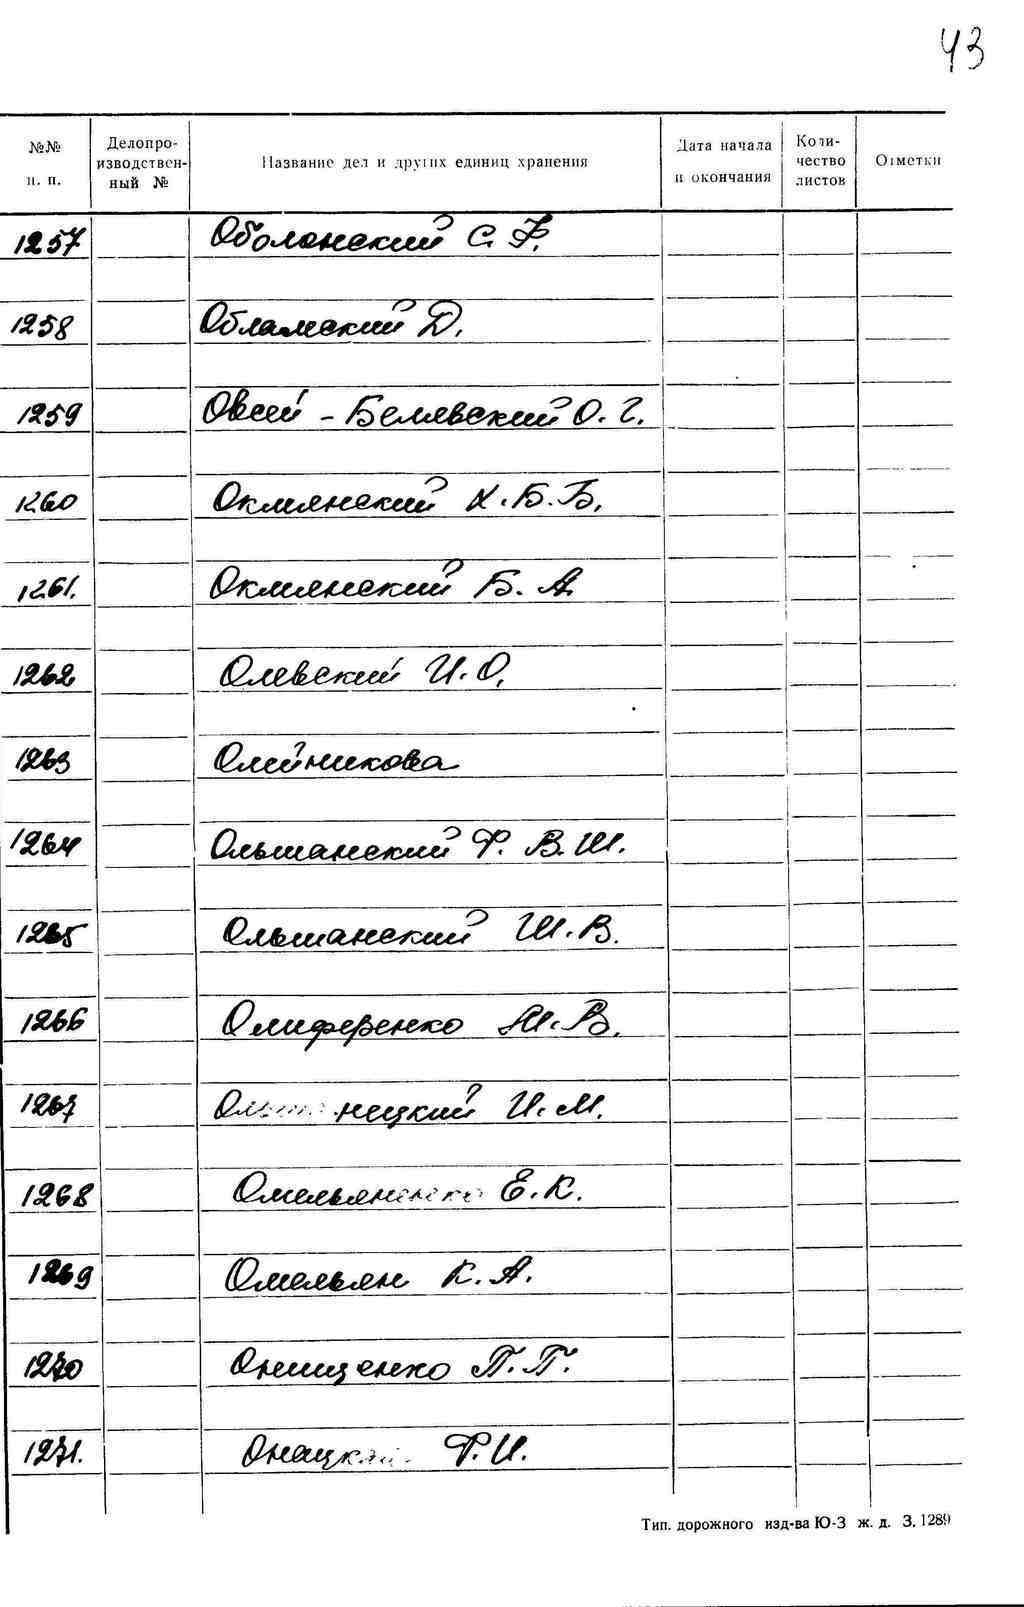 43
№№ п. п.
Делопро-
изводствен-
ный №
Название дел и других единиц хранения
Дата начала
и окончания
Коли-
чество
листов
Отметки
1257 Оболонский С. Ф.
1258 Обламский Д.
1259 Овсей - Белявский О. Г.
1260 Окмянский Х. Б. Б.
1261. Окмянский Б. А.
1262 Олевский И. О.
1263 Олейникова
1264 Ольшанский Ф. В. Ш.
1265 Ольшанский Ш. В.
1266 Олиференко М. В.
1267 И. М.
1268 Омельяненко Е. К.
1269 Омельян К. А.
1270 Онищенко П. П.
1271. Онацкий Ф. И.
Тип. дорожного изд-ва Ю-З ж. д. З. 1289